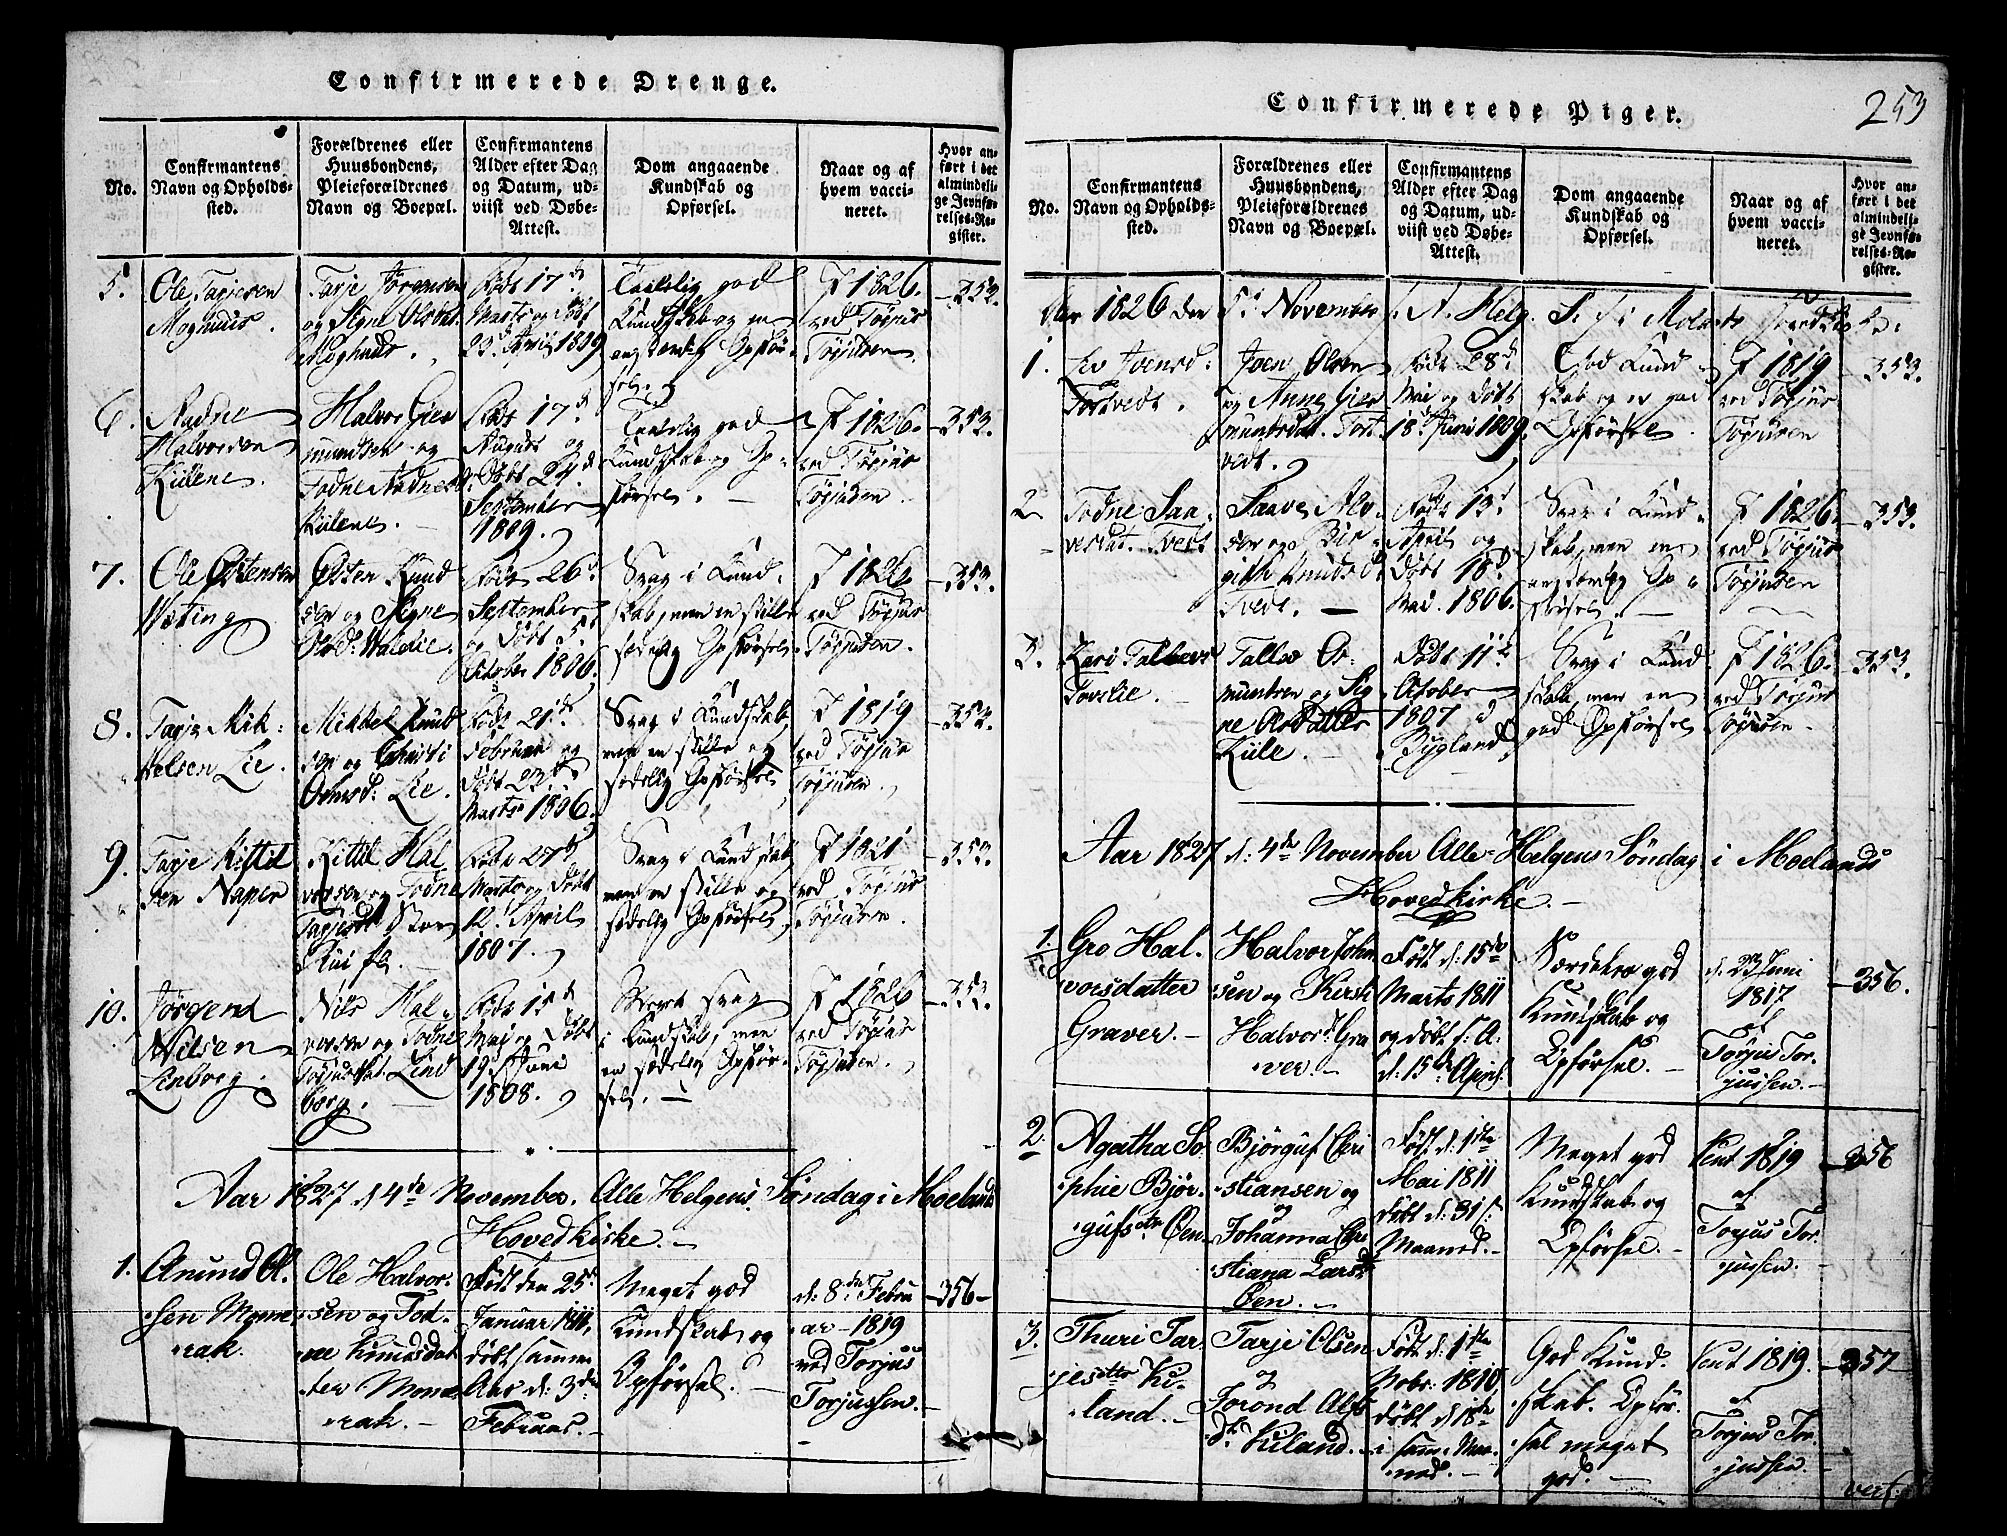 Confirmerede Drenge.
No.
Confirmantens
Navn og Opholds-
sted.
Forældrenes eller
Huusbondens,
Pleieforældrenes
Navn og Boepæl.
Confirmantens
Alder efter Dag
og Datum, ud-
viist ved Døbe-
Attest.
Dom angaaende
Kundskab og
Opførsel.
Naar og af
hvem vacci-
neret.
Hvor an-
ført i det
almindeli-
ge Jevnfø-
relses-Re-
gister.
5.
Ole Tarjesen
Moghuus.
Tarje Jørgensen
og Signe Olsdat.
Moghuus.
Født 17de
Marts og døbt
23d April 1809
Taalelig god
Kundskab og en
anstændig Opfør-
sel.
1826.
ved Torjus
Torjusen.
352.
6.
Aadne
Halvorsen
Kiilene.
Halvor Gier
mundsen og
Todne Aadnesd.
Kiilene.
Født 17de
August og
døbt 24de
September
1809.
Taalelig god
Kundskab og Op-
førsel.
1826.
ved Torjus
Torjusen.
353.
7.
Ole Østensen
Østen Knud
sen og Signe
Olsd.
Født 26d.
September
og døbt 5t
October 1806.
Svag i Kund-
skab, men en stille
sædelig Opførsel.
1826
ved Torjus
Torjusen.
353.
8.
Tarje Mik-
kelsen Lie.
Mikkel Knud
sen og Christi
Ormsd. Lie.
Født 21de
Februar og
døbt 23de
Marts 1806.
Svag i Kundskab,
men en stille og
sædelig Opførsel
1819
ved Torjus
Torjusen.
353.
9.
Tarje Kittil
sen Naper
Kittil Hal
vorsen og Todne
Tarjesdt.
Født 27de
Marts og døbt
12. April
1807.
Svag i Kundskab
men en stille og
sædelig Opførsel.
1821
ved Torjus
Torjusen.
353.
10.
Jørgend
Nilsen
Linborg.
Nils Hal-
vorsen og Todne
Torjusdat. Lind
borg.
Født 15d
Maj og døbt
19. Juni
1808.
Meget svag
i Kundskab, men
en sædelig Opfør-
sel.
1826
ved Torjus
Torjusen.
353.
Aar 1827 d 4de November. Alle Helgens Søndag i Moelands
Hovedkirke.
1.
Anund Ol-
sen Momme-
rak.
Ole Halvor-
sen og Tod-
ne Knudsdat-
ter Momme-
rak.
Født den 25d.
Januar 1811,
døbt samme
Aar d: 3de
Februar.
Meget god
Kundskab og
Opførsel.
d: 8de Febru
ar 1819
ved Torjus
Torjussen.
356
Confirmerede Piger.
253
No.
Confirmantens
Navn og Opholds-
sted.
Forældrenes eller
Huusbondens,
Pleieforældrenes
Navn og Boepæl.
Confirmantens
Alder efter Dag
og Datum, ud-
viist ved Døbe-
Attest.
Dom angaaende
Kundskab og
Opførsel.
Naar og af
hvem vacci-
neret.
Hvor an-
ført i det
almindeli-
ge Jevnfø-
relses-Re-
gister.
Aar 1826 den 5t November A. Helg. S. i Molands
1.
Joensd.
Tostvedt.
Joen Olsen
og Anne Gier
mundsdat. Tost-
vedt.
Født 28d
Mai og døbt
18d Juni 1809.
God Kund
skab og en god
Opførsel.
1819
ved Torjus
Torjusen
353.
2
Todne Saa-
vesdat. Tvedt
Saave Alv-
sen og Bir-
gith Knudsd.
Tvedt.
Født 13d
April og
døbt 18d.
Mai. 1806.
Svag i Kund-
skab, men en
anstændig Op-
førsel.
1826
ved Torjus
Torjusen
353.
3.
Kari Tallevs
Tallev
mundsen og Sig
ne
Kiile.
Født 11te
October
1807 i
Bygland
Svag i Kund
skab, men en
god Opførsel
1826.
ved Torjus
Torjusen.
353.
Aar 1827 d: 4de November Alle Helgens Søndag i Moelands
Hovedkirke.
1.
Gro Hal-
vorsdatter
Graver.
Halvor John
sen og Kirsti
Halvorsd. Gra
ver.
Født d: 15de
Marts 1811
og døbt s. A.
d. 15de April.
Særdeles god
Kundskab og
Opførsel.
d: 23 Juni
1817
af
Torjus Tor-
jussen.
356.
2.
Agatha So-
phie Bjør-
gufsdtr Øen
Bjørguf Chri
stiansen og
Johanna Chri
stiana Larsd.
Øen.
Født d. 1ste
Mai 1811
døbt d. 31 s.
Maaned.
Meget god
Kundskab og
Opførsel.
Vent 1819
af
Torjus Tor-
jussen.
356
3.
Thuri Tar-
jesdtter Ku-
land.
Tarje Olsen
og
Jorond Alfs
Dr Kuland.
Født d: 1ste
Nobr: 1810,
døbt d 18de
i samme Maa-
ned.
God Kund-
skab. Opfør-
sel meget
god.
Vent 1819.
af
Torjus Tor-
jussen.
357